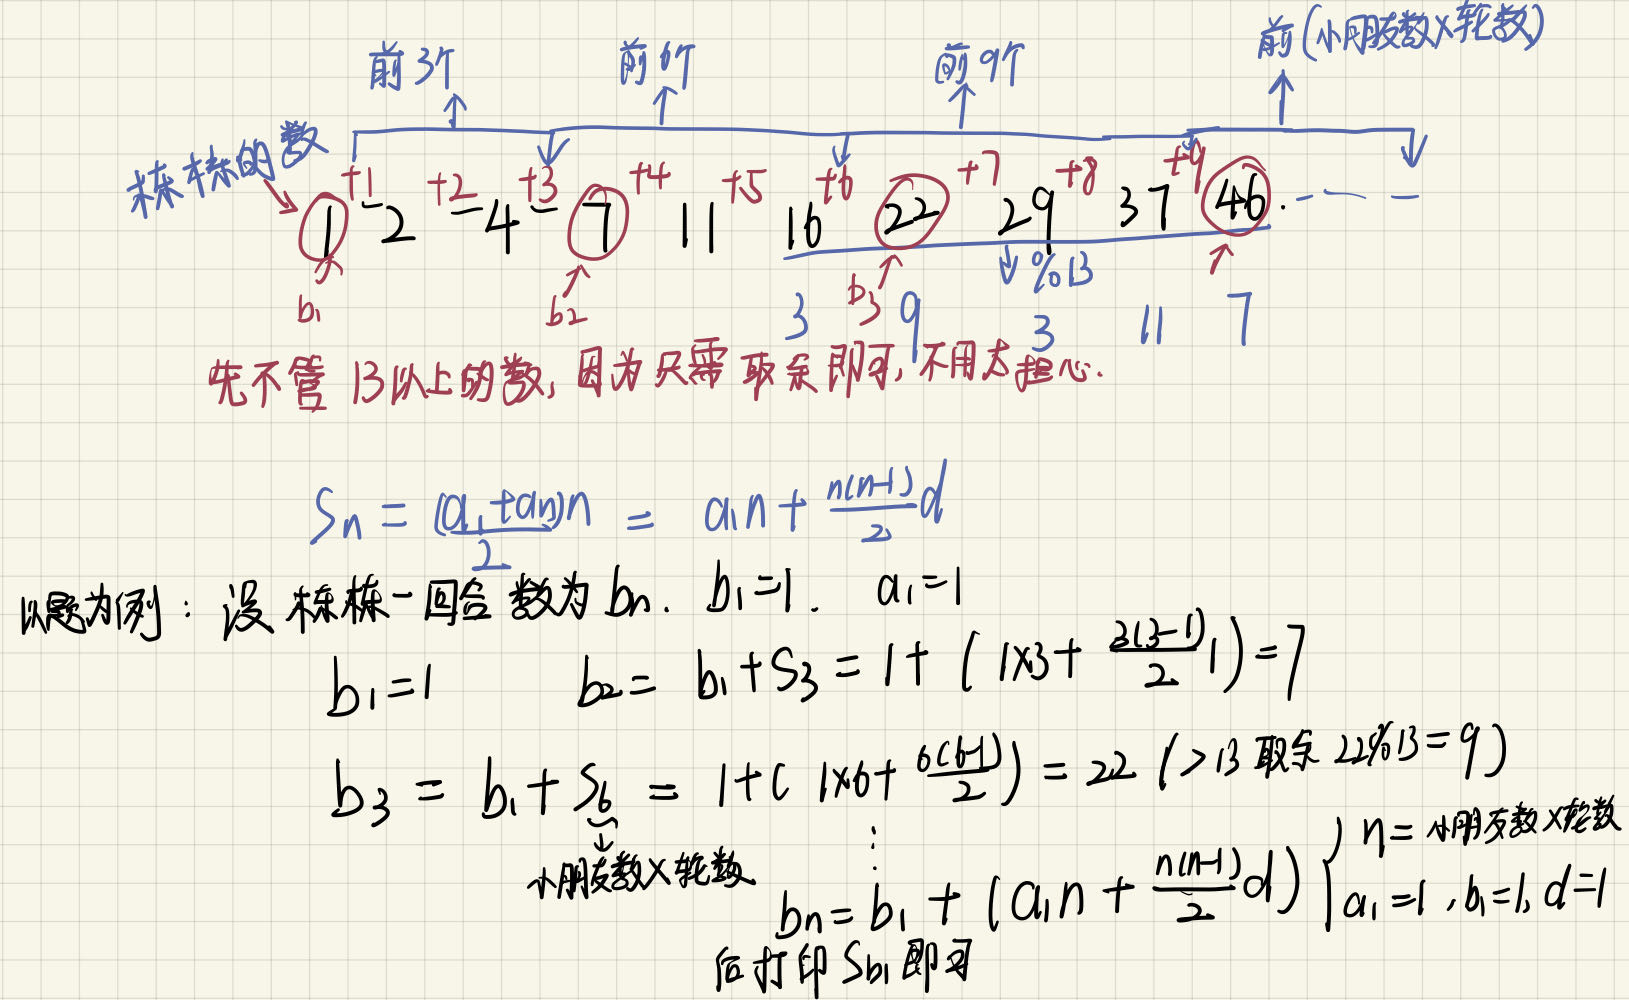 前3个 前6个 前9个 前(小朋友数×轮数)
栋栋的数
+1 +2 +3 +4 +5 +6 +7 +8 +9
1 2 4 7 11 16 22 29 37 46 ......
b₁ b₂ b₃ %13
3 9 3 11 7
先不管 13以上的数, 因为只需 取余 即可, 不用太担心.
Sₙ = (a₁+aₙ)n/2 = a₁n + n(n-1)/2 d
以题为例: 设 栋栋一回合 数为 bₙ. b₁=1. a₁=1
b₁=1 b₂= b₁+S₃ = 1+ (1×3+ 3(3-1)/2 1)=7
b₃ = b₁+S₆ = 1+( 1×6+ 6(6-1)/2 ) = 22 (>13 取余 22%13=9)
小朋友数×轮数
⋮
bₙ= b₁ + (a₁n + n(n-1)/2 d) { n= 小朋友数×轮数
a₁=1, b₁=1, d=1
后打印 Sb₁ 即可